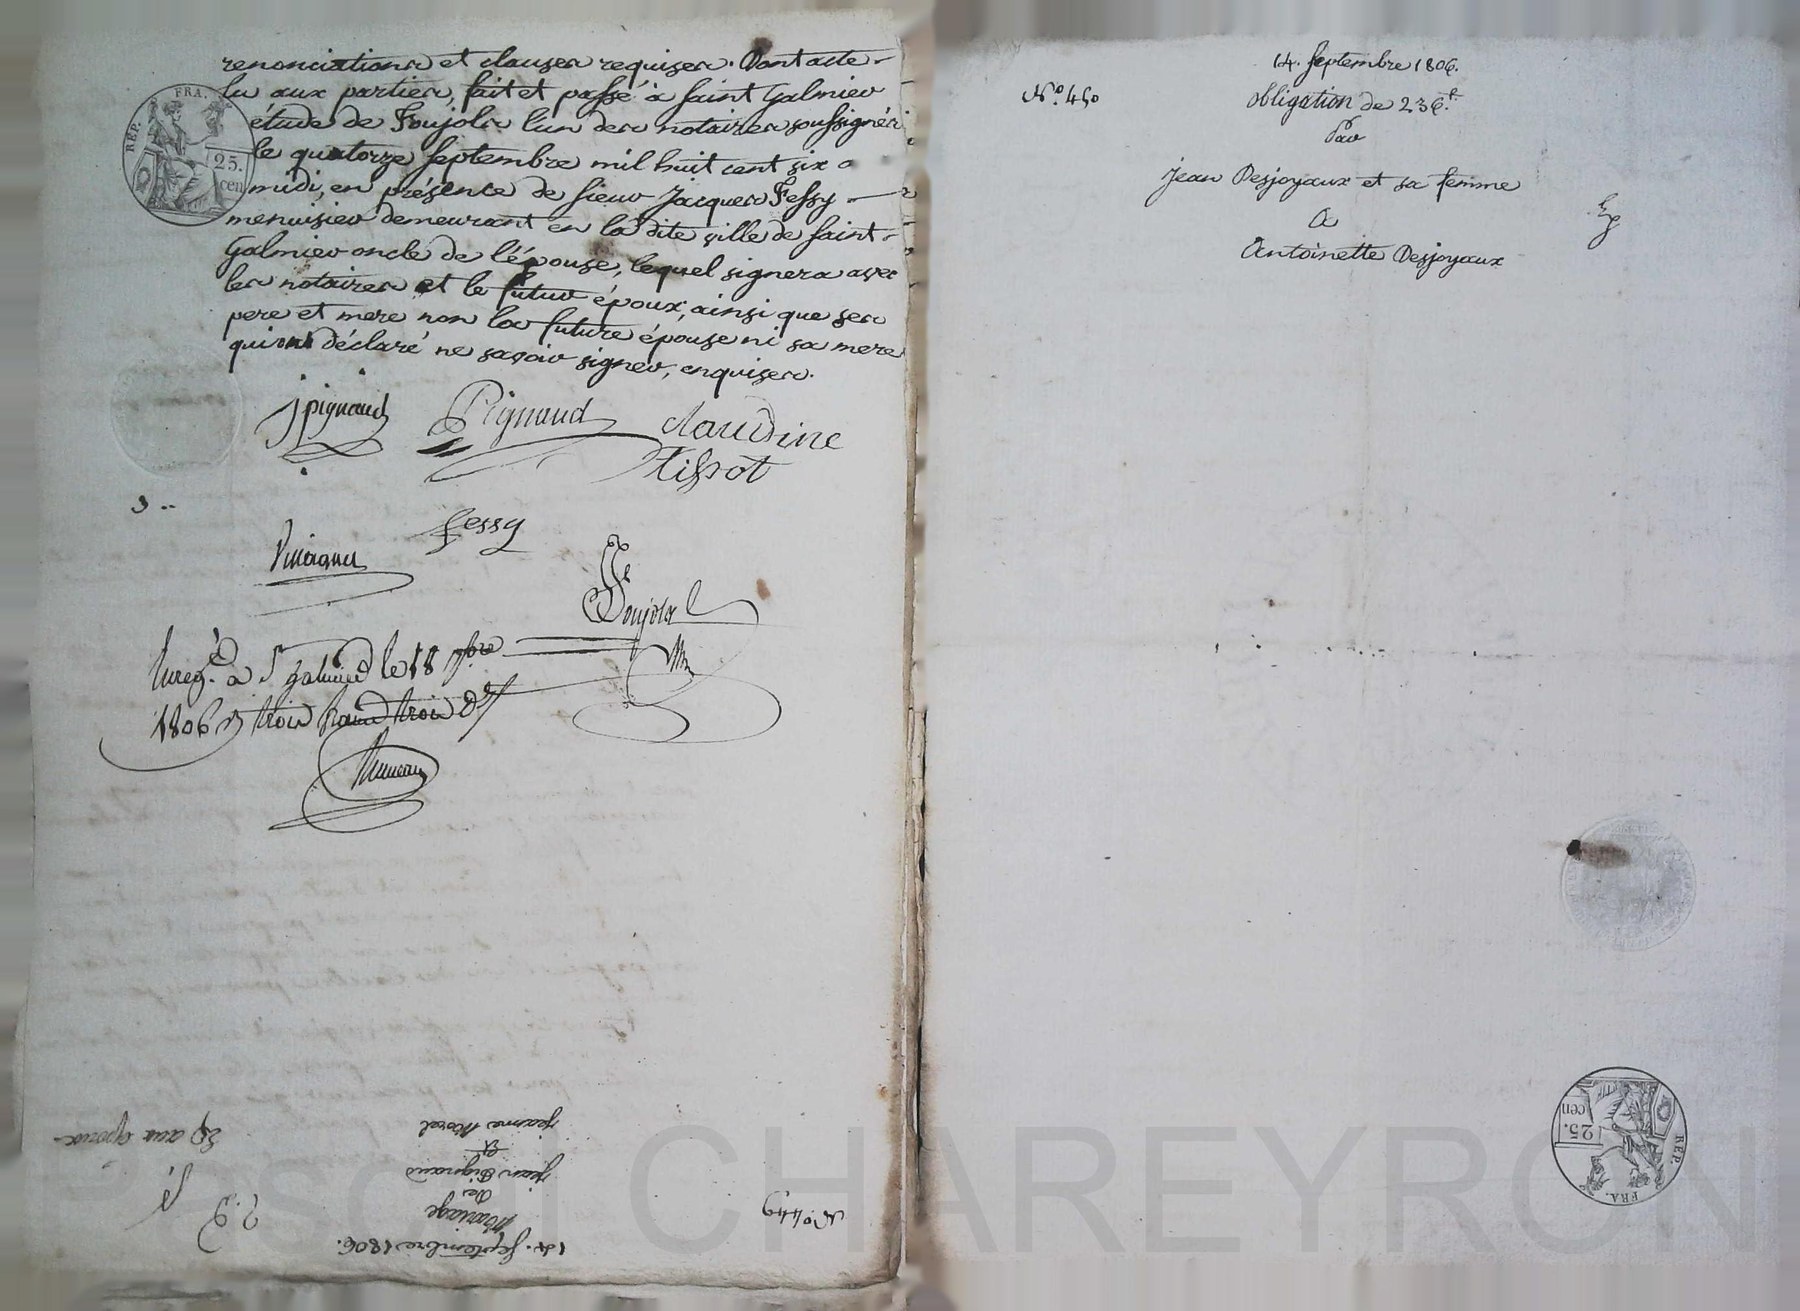 renonciations et clauses requises. Dont acte
lu aux parties, fait et passé à saint Galmier
étude de Foujols l'un des notaires soussignés
le quatorze septembre mil huit cent six a
midi, en présence de sieur Jacques Fessy
menuisier demeurant en la dite ville de saint
Galmier oncle de l'épouse, lequel signera avec
les notaires et le futur époux, ainsi que ses
pere et mere non la future épouse ni sa mere
qui ont déclaré ne savoir signer, enquises.
REP. FRA.
25.
cen
jpignaud Pignaud claudine
tissot
fessy
Foujols
Enreg.é à St galmier le 18 7bre
1806 trois francs trois d.
14. septembre 1806.
N.º 449
Mariage
de
jean Pignaud
et
jeanne Morel
Exp aux époux
14. septembre 1806.
Nº. 450
obligation de 236.f
Par
jean Desjoyaux et sa femme
A
Antoinette Desjoyaux
REP. FRA.
25.
cen
SCI CHAREYRON